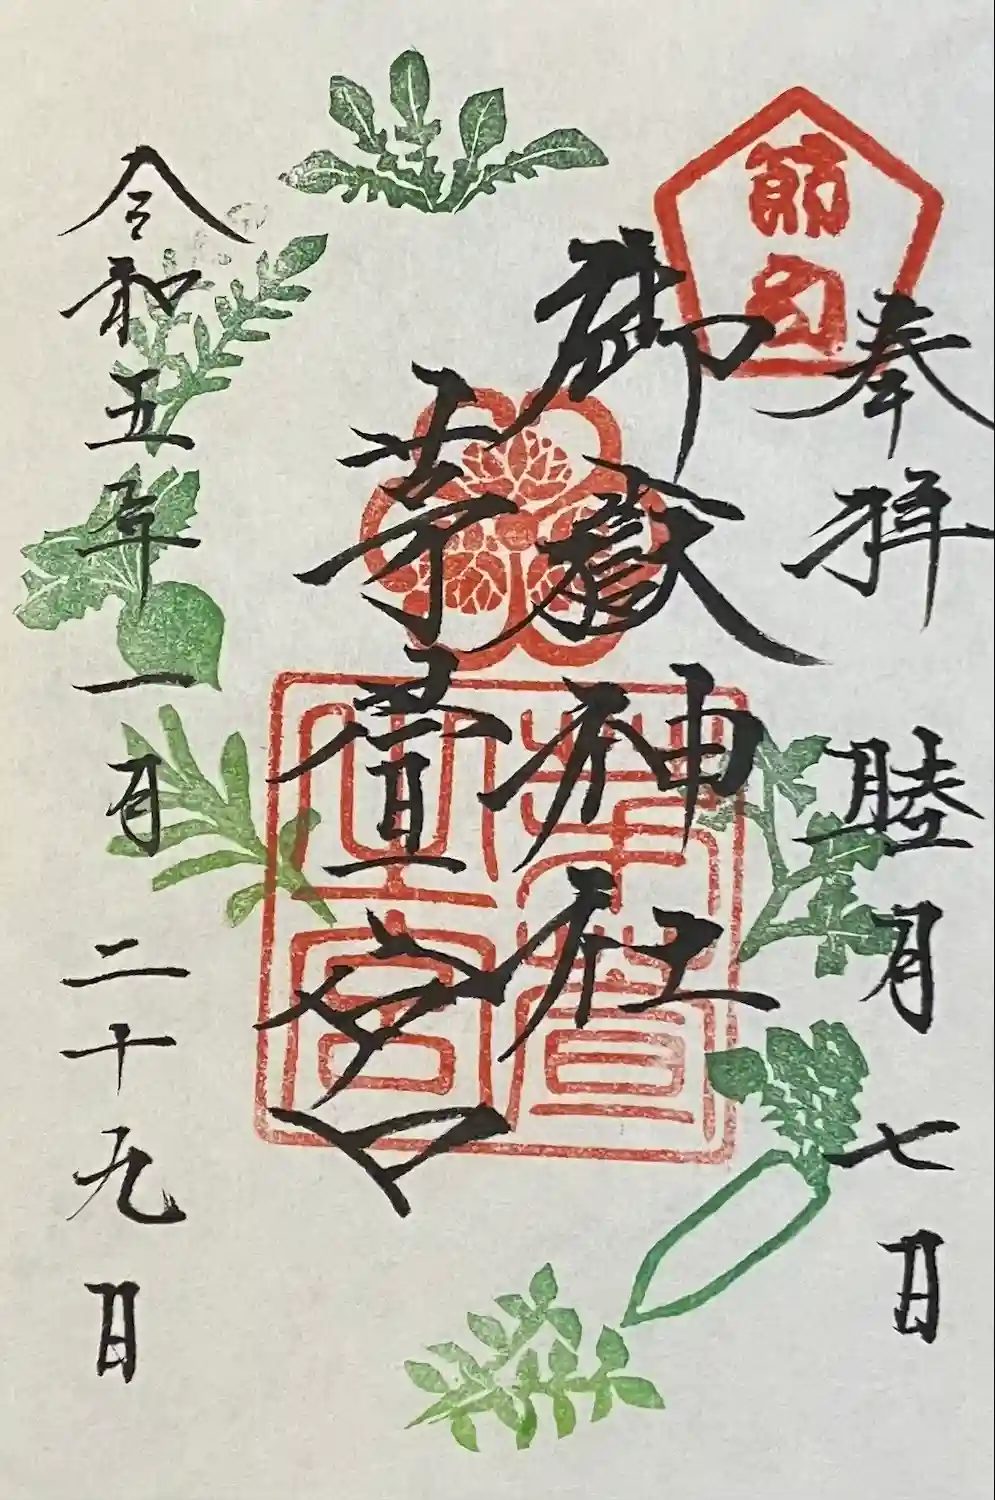 節句
奉拝 睦月 七日
御嶽神社
茅萱之宮
令和五年一月二十九日
茅萱之宮